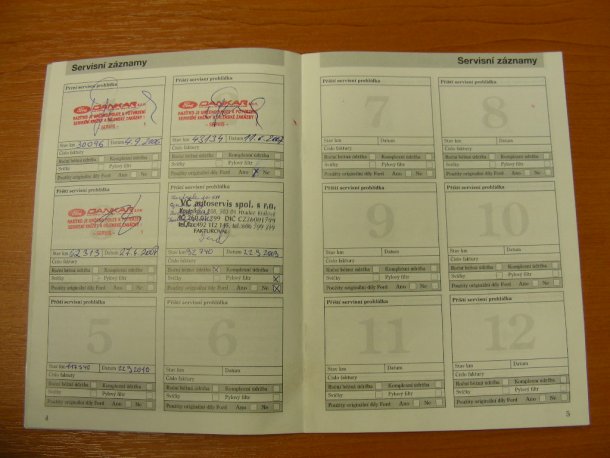 Servisní záznamy
Příští servisní prohlídka
Ford DANKAR
RAZÍTKO JE URČENO POUZE K POTVRZENÍ
SERVISNÍ KNÍŽKY A ZÁRUKNÍ ZAKÁZKY
- SERVIS -
Stav km 30096 Datum 4.9.2006
Číslo faktury
Roční běžná údržba Komplexní údržba
Svíčky Pylový filtr
Použity originální díly Ford Ano Ne
Příští servisní prohlídka
Ford DANKAR
RAZÍTKO JE URČENO POUZE K POTVRZENÍ
SERVISNÍ KNÍŽKY A ZÁRUKNÍ ZAKÁZKY
- SERVIS -
Stav km 43134 Datum
Číslo faktury
Roční běžná údržba Komplexní údržba
Svíčky Pylový filtr
Použity originální díly Ford Ano Ne
Příští servisní prohlídka
Ford DANKAR
RAZÍTKO JE URČENO POUZE K POTVRZENÍ
SERVISNÍ KNÍŽKY A ZÁRUKNÍ ZAKÁZKY
- SERVIS -
Stav km 62313 Datum
Číslo faktury
Roční běžná údržba Komplexní údržba
Svíčky Pylový filtr
Použity originální díly Ford Ano Ne
Příští servisní prohlídka
autoservis spol. s r.o.
Hradec Králové
FAKTUROVNA
Stav km 92 740 Datum
Číslo faktury
Roční běžná údržba Komplexní údržba
Svíčky Pylový filtr
Použity originální díly Ford Ano Ne
Příští servisní prohlídka
5
Stav km 117340 Datum 22.3.2010
Číslo faktury
Roční běžná údržba Komplexní údržba
Svíčky Pylový filtr
Použity originální díly Ford Ano Ne
Příští servisní prohlídka
6
Stav km Datum
Číslo faktury
Roční běžná údržba Komplexní údržba
Svíčky Pylový filtr
Použity originální díly Ford Ano Ne
4
Servisní záznamy
Příští servisní prohlídka
7
Stav km Datum
Číslo faktury
Roční běžná údržba Komplexní údržba
Svíčky Pylový filtr
Použity originální díly Ford Ano Ne
Příští servisní prohlídka
8
Stav km Datum
Číslo faktury
Roční běžná údržba Komplexní údržba
Svíčky Pylový filtr
Použity originální díly Ford Ano Ne
Příští servisní prohlídka
9
Stav km Datum
Číslo faktury
Roční běžná údržba Komplexní údržba
Svíčky Pylový filtr
Použity originální díly Ford Ano Ne
Příští servisní prohlídka
10
Stav km Datum
Číslo faktury
Roční běžná údržba Komplexní údržba
Svíčky Pylový filtr
Použity originální díly Ford Ano Ne
Příští servisní prohlídka
11
Stav km Datum
Číslo faktury
Roční běžná údržba Komplexní údržba
Svíčky Pylový filtr
Použity originální díly Ford Ano Ne
Příští servisní prohlídka
12
Stav km Datum
Číslo faktury
Roční běžná údržba Komplexní údržba
Svíčky Pylový filtr
Použity originální díly Ford Ano Ne
5